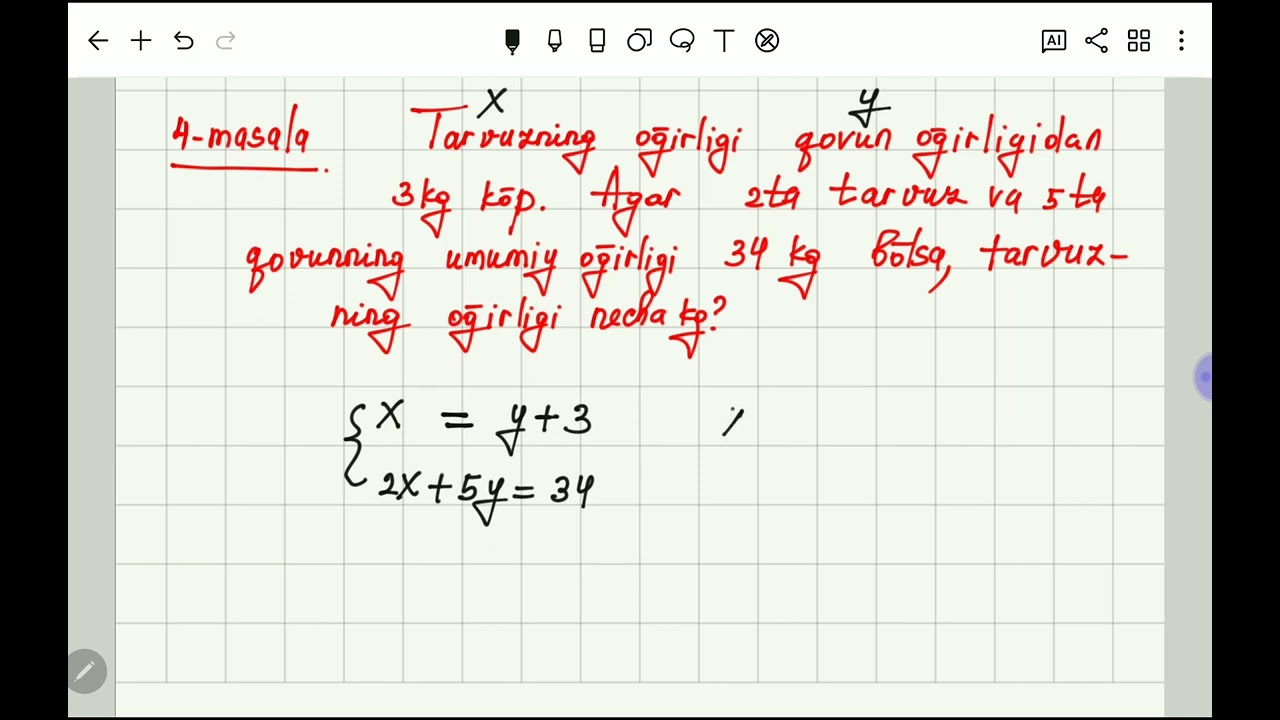 AI
x y
4-masala Tarvuzning oḡirligi qovun oḡirligidan
3kg kōp. Agar 2ta tarvuz va 5ta
qovunning umumiy oḡirligi 34 kg bōlsa, tarvuz-
ning oḡirligi necha kg?
x = y+3
2x+5y=34